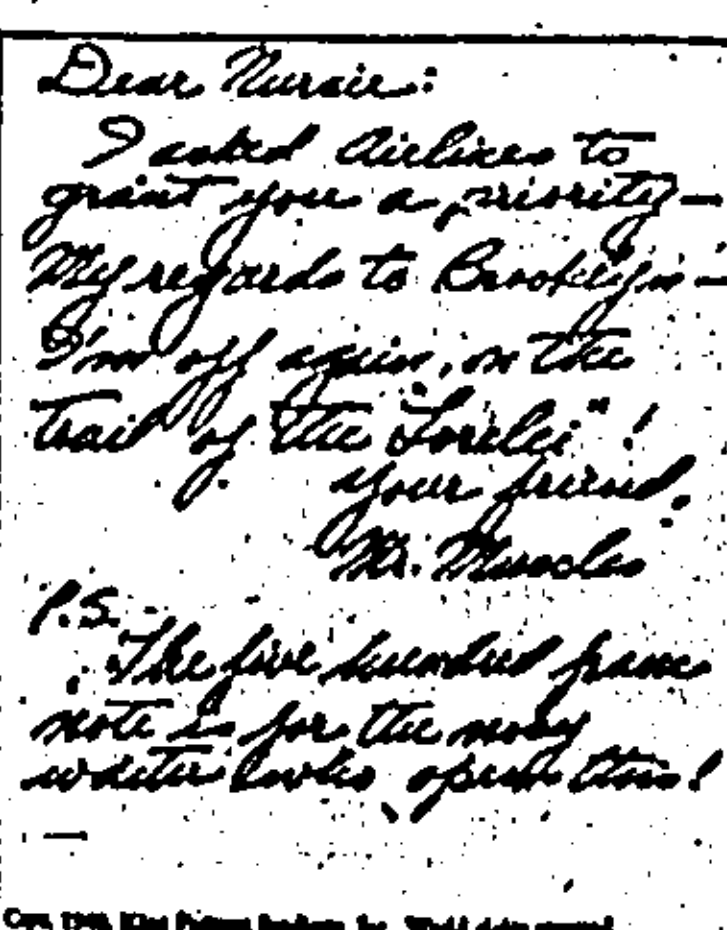 Dear Nursie:
I asked Airlines to
grant you a priority—
My regards to Brooklyn—
I'm off again, on the
trail of the "Lorelei"!
your friend,
Mr. Muscles
P.S.
The five hundred franc
note is for the nosy
waiter who opens this!
Copr. King Features Syndicate, Inc. World rights reserved